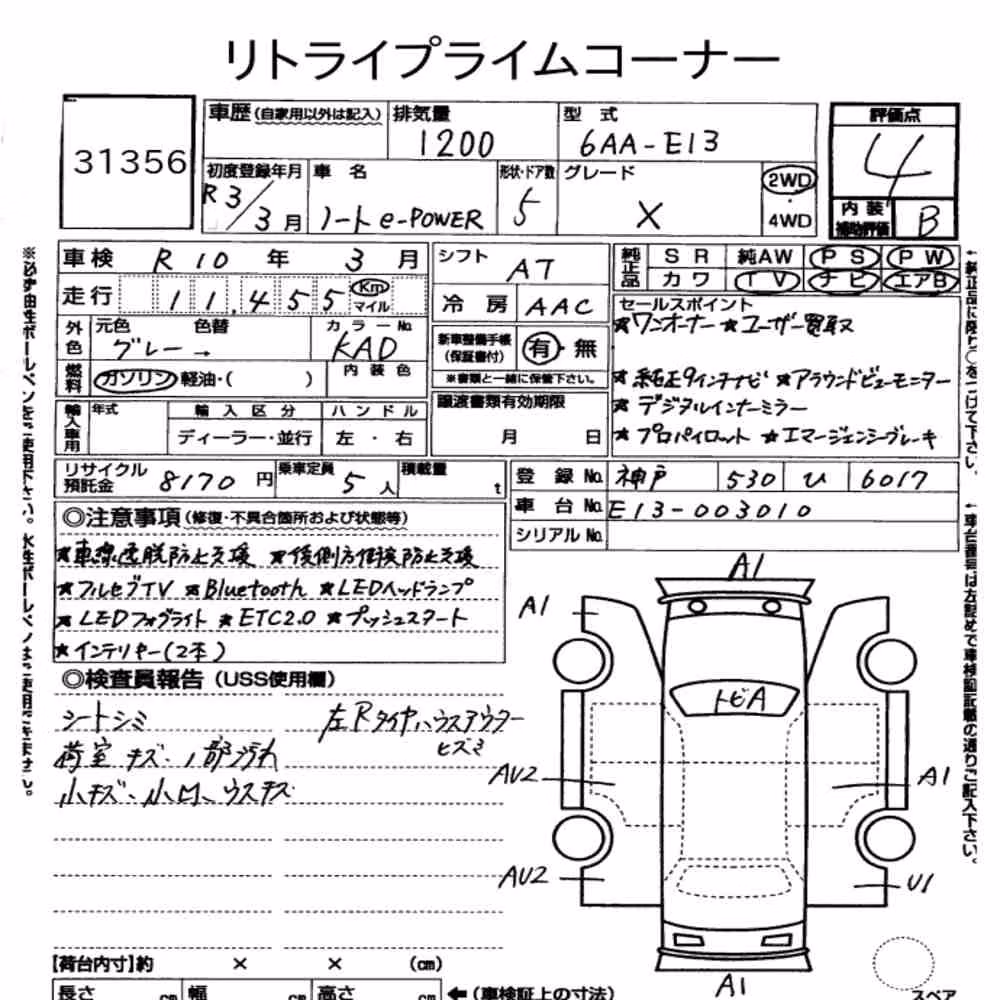 リトライプライムコーナー
31356
車歴 (自家用以外は記入) 排気量 型式 評価点
1200 6AA-E13 4
初度登録年月 車名 形状・ドア数 グレード 2WD
R3/3月 ノート e-POWER 5 X 4WD
内装補助評価 B
車検 R10年 3月 シフト AT
純正品 SR 純AW PS PW
カワ TV ナビ エアB
走行 11,455 Km マイル 冷房 AAC
セールスポイント
★ワンオーナー ★ユーザー買取
外色 元色 色替 カラーNo.
グレー → KAD
新車整備手帳(保証書付) 有・無
※書類と一緒に保管下さい。
燃料 ガソリン 軽油・( ) 内装色
★純正9インチナビ ★アラウンドビューモニター
★デジタルインナーミラー
★プロパイロット ★エマージェンシーブレーキ
輸入車用 年式 輸入区分 ハンドル
ディーラー・並行 左・右
譲渡書類有効期限
月 日
リサイクル預託金 8170円 乗車定員 5人 積載量 t
登録No. 神戸 530 ひ 6017
車台No. E13-003010
シリアルNo.
◎注意事項 (修復・不具合箇所および状態等)
★車線逸脱防止支援 ★後側方衝突防止支援
★フルセグTV ★Bluetooth ★LEDヘッドランプ
★LEDフォグライト ★ETC2.0 ★プッシュスタート
★インテリキー(2本)
◎検査員報告 (USS使用欄)
シートシミ 左Rタイヤハウスアウター
ヒズミ
荷室キズ、1部汚れ
小キズ、小凹、ウスキズ
A1
A1
トビA
AU2 A1
AU2 U1
A1
【荷台内寸】約 × × (cm)
長さ cm 幅 cm 高さ cm ←(車検証上の寸法)
スペア
※必ず油性ボールペンをご使用下さい。水性ボールペンはご使用できません。
←純正品に限り○をつけて下さい。
←車台番号は左詰めで車検証記載の通りご記入下さい。